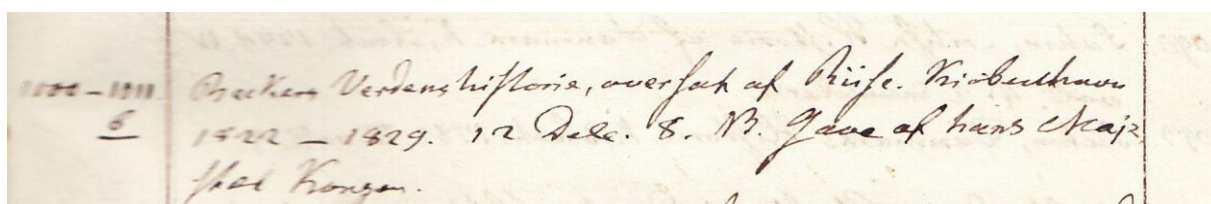 1100 – 1111. Beckers Verdenshistorie, oversat af Riise. Kiöbenhavn
6 1822 – 1829. 12 Dele. 8. B. Gave af hans Maje
stæt Kongen.